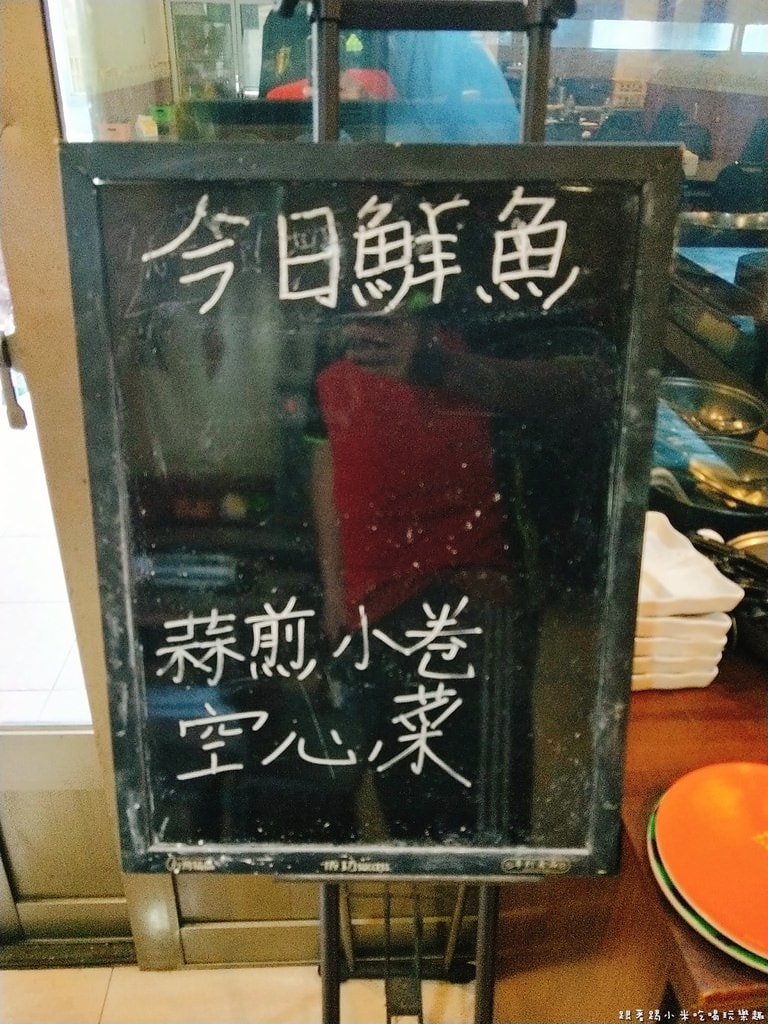 今日鮮魚
蒜煎小卷
空心菜
跟著踢小米吃喝玩樂趣